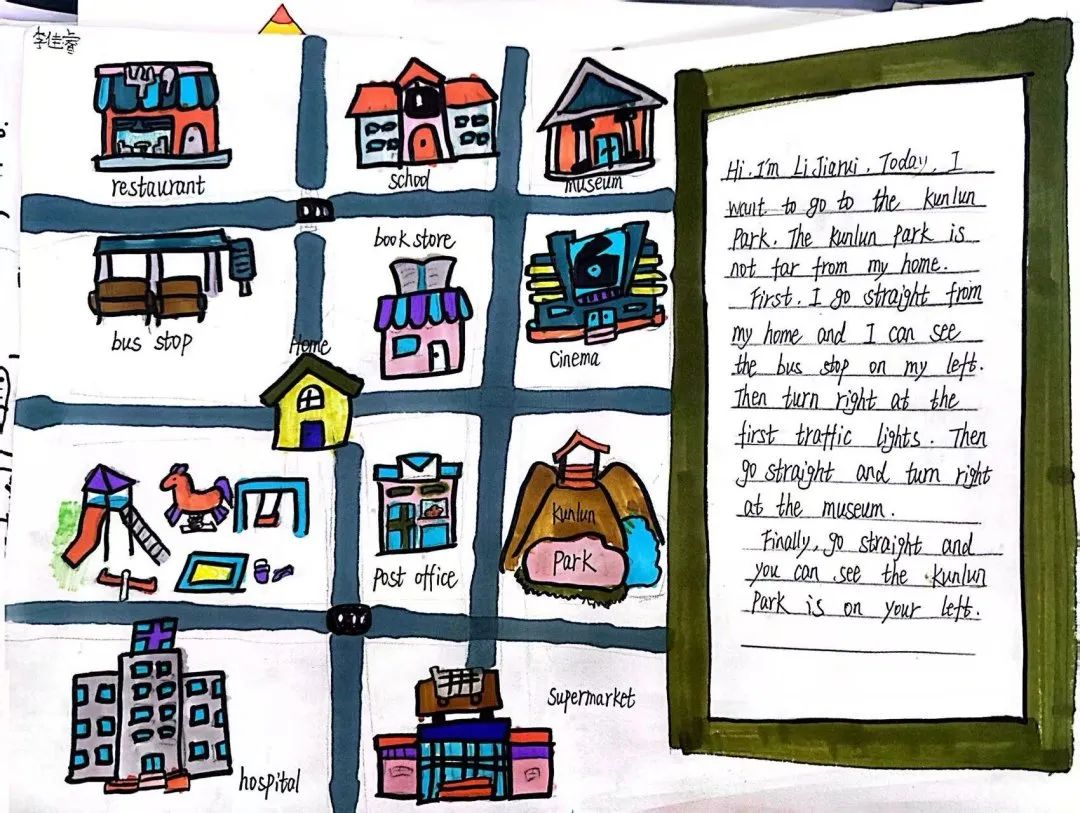 李佳睿
restaurant
school
museum
book store
bus stop
Home
Cinema
Kunlun
Park
post office
supermarket
hospital
Hi. I'm Li Jiarui. Today, I
want to go to the Kunlun
Park. The Kunlun Park is
not far from my home.
First. I go straight from
my home and I can see
the bus stop on my left.
Then turn right at the
first traffic lights. Then
go straight and turn right
at the museum.
Finally, go straight and
you can see the Kunlun
Park is on your left.